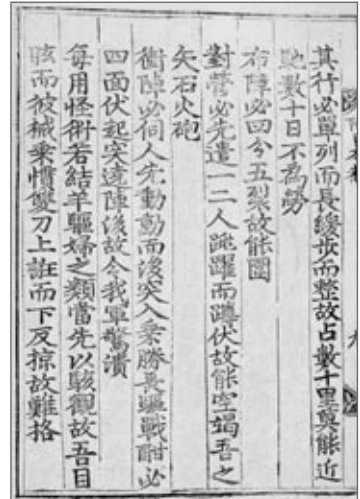 其行必單列而長緩步而整故占數十里莫能近
馳數十日不為勞
布陣必四分五裂故能圍
對營必先遣一二人跳躍而蹲伏故能空竭吾之
矢石火砲
衝陣必伺人先動動而後突入乘勝長驅戰酣必
四面伏起突遶陣後故令我軍驚潰
每用怪術若結羊驅婦之類當先以駭觀故吾目
眩而彼械乘慣雙刀上誑而下反掠故難格